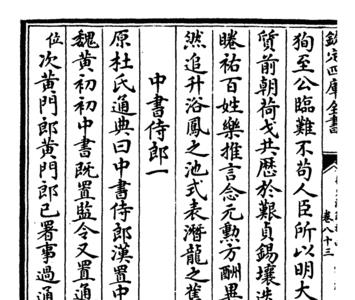 欽定四庫全書
卷八十三
狥至公臨難不苟人臣所以明大
質前朝荷戈共歴於艱貞錫壤迭
睠祐百姓樂推言念元勲方酬異
然追升浴鳳之池式表潛龍之舊
中書侍郎一
原杜氏通典曰中書侍郎漢置中
魏黄初初中書既置監令又置通
位次黄門郎黄門郎已署事過通